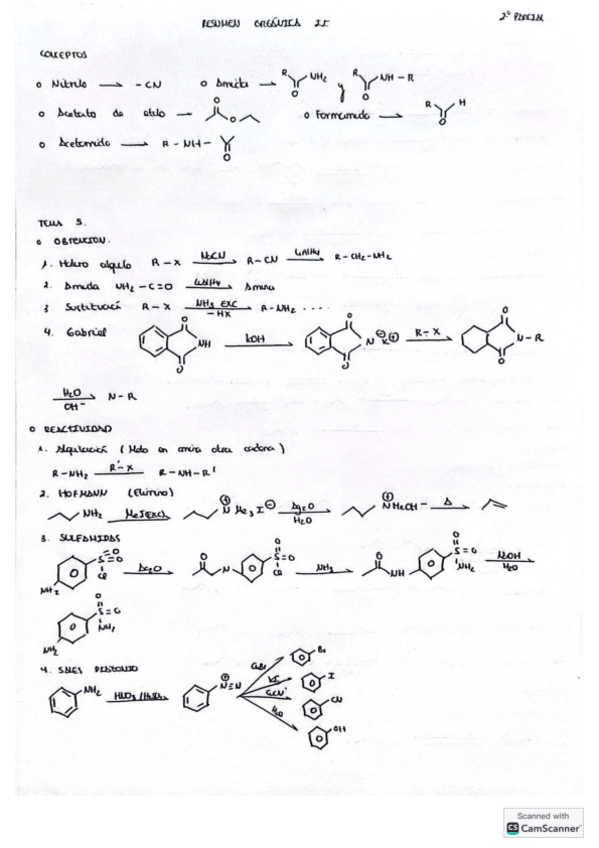 RESUMEN ORGÁNICA II
2º PARCIAL
CONCEPTOS
o Nitrilo → -CN o Amida → R NH2 O y R NH-R O
o Acetato de etilo → O O o Formamida → R H O
o Acetamida → R-NH- O
TEMA 5.
o OBTENCION.
1. Halero alquilo R-X NaCN → R-CN LiAlH4 → R-CH2-NH2
2. Amida NH2-C=O LiAlH4 → Amina
3. Sustitución R-X NH3 EXC -HX → R-NH2 ....
4. Gabriel O NH O KOH → O N⊖ K⊕ O R-X → O N-R O
H2O OH- → N-R
o REACTIVIDAD
1. Alquilación (Meto en amina otra cadena)
R-NH2 R'-X R-NH-R'
2. HOFMANN (Elimino)
NH2 MeI(EXC) → ⊕ N Me3 I⊖ Ag2O H2O → ⊕ Δ →
3. SULFAMIDAS
NH2 S=O O Cl Ac2O → O N S=O O Cl NH3 → O NH S=O O NH2 NaOH H2O
NH2 S=O O NH2
4. SALES DIAZONIO
NH2 → ⊕ N≡N
CuBr Br
KI I
CuCN CN
H2O OH
Scanned with
CS CamScanner